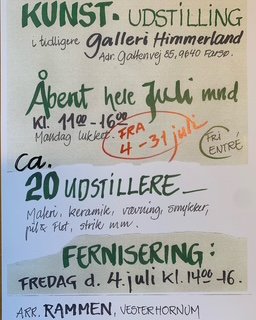 KUNST. UDSTILLING
i tidligere galleri Himmerland
Adr. Gattenvej 85, 9640 Farsø.
Åbent hele Juli mnd
Kl. 11⁰⁰ - 16⁰⁰
Mandag lukket.
FRA
4 - 31 juli
FRI
ENTRÉ
Ca.
20 UDSTILLERE_
Maleri, keramik, vævning, smykker,
pil & Flet, strik m m.
FERNISERING:
FREDAG d. 4. juli kl. 14⁰⁰ -16.
ARR. RAMMEN, VESTERHORNUM